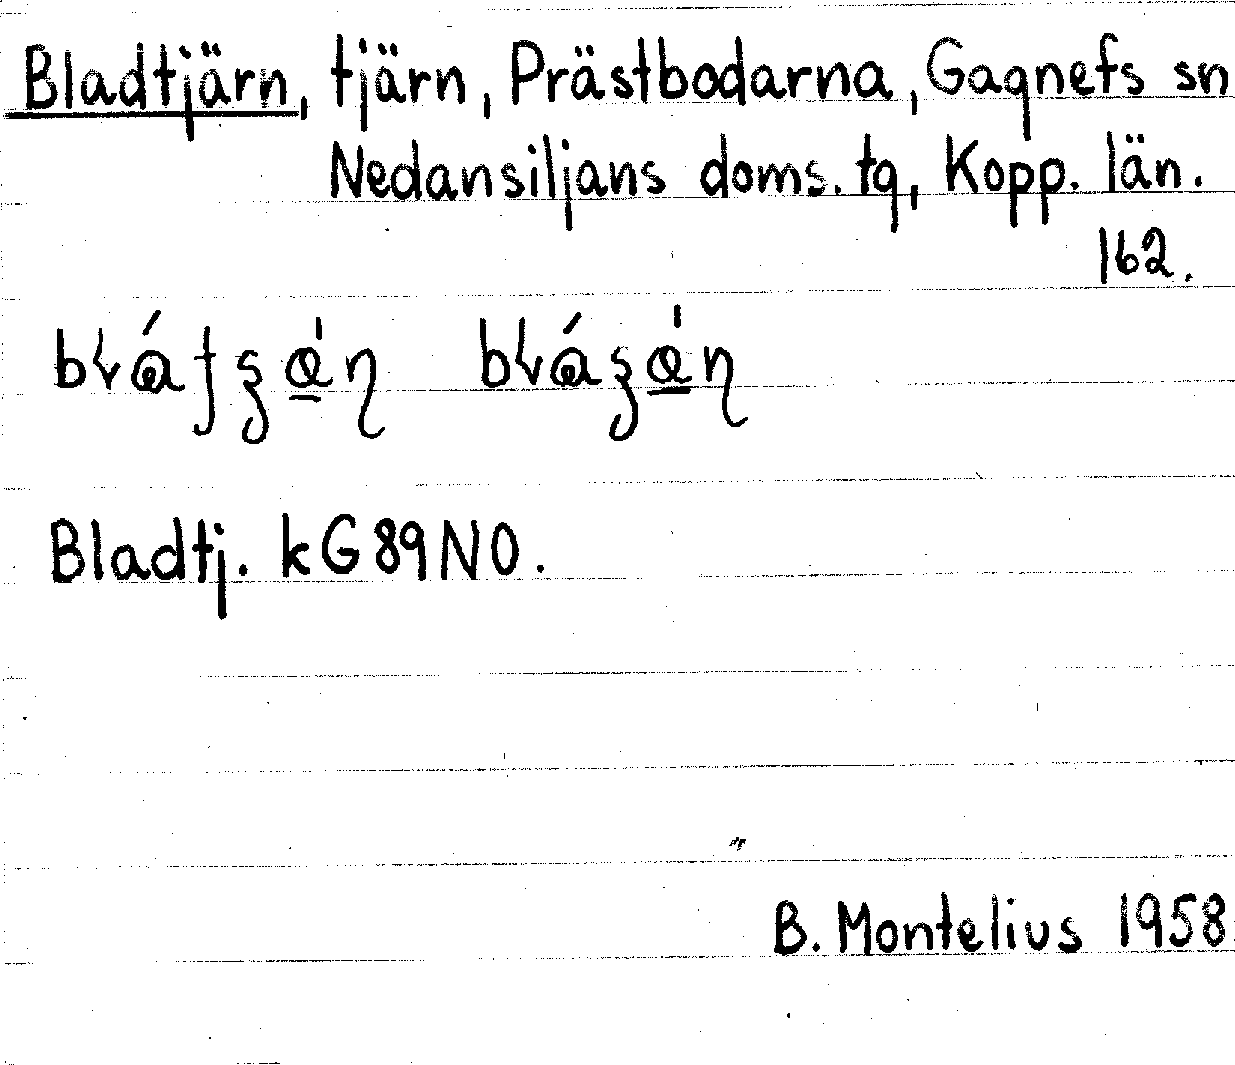 Bladtjärn, tjärn, Prästbodarna, Gagnefs sn
Nedansiljans doms. tg, Kopp. län.
162.
Bladtj. kG89NO.
B. Montelius 1958